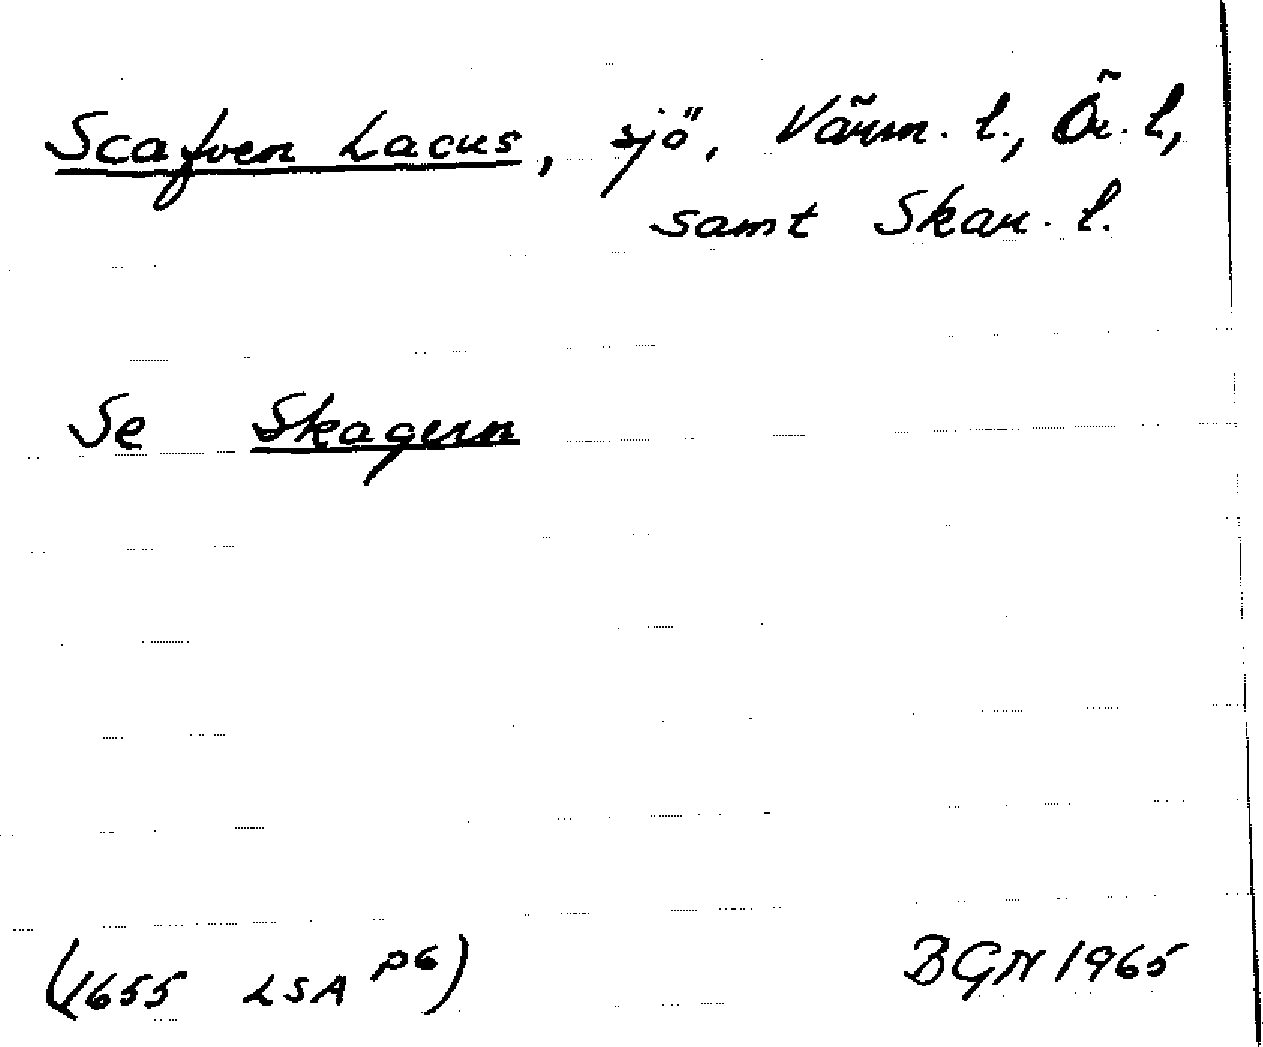 Scafven Lacus, sjö, Värm. l., Ör. l,
samt Skar. l.
Se Skagern
(1655 LSA P6) BGN 1965